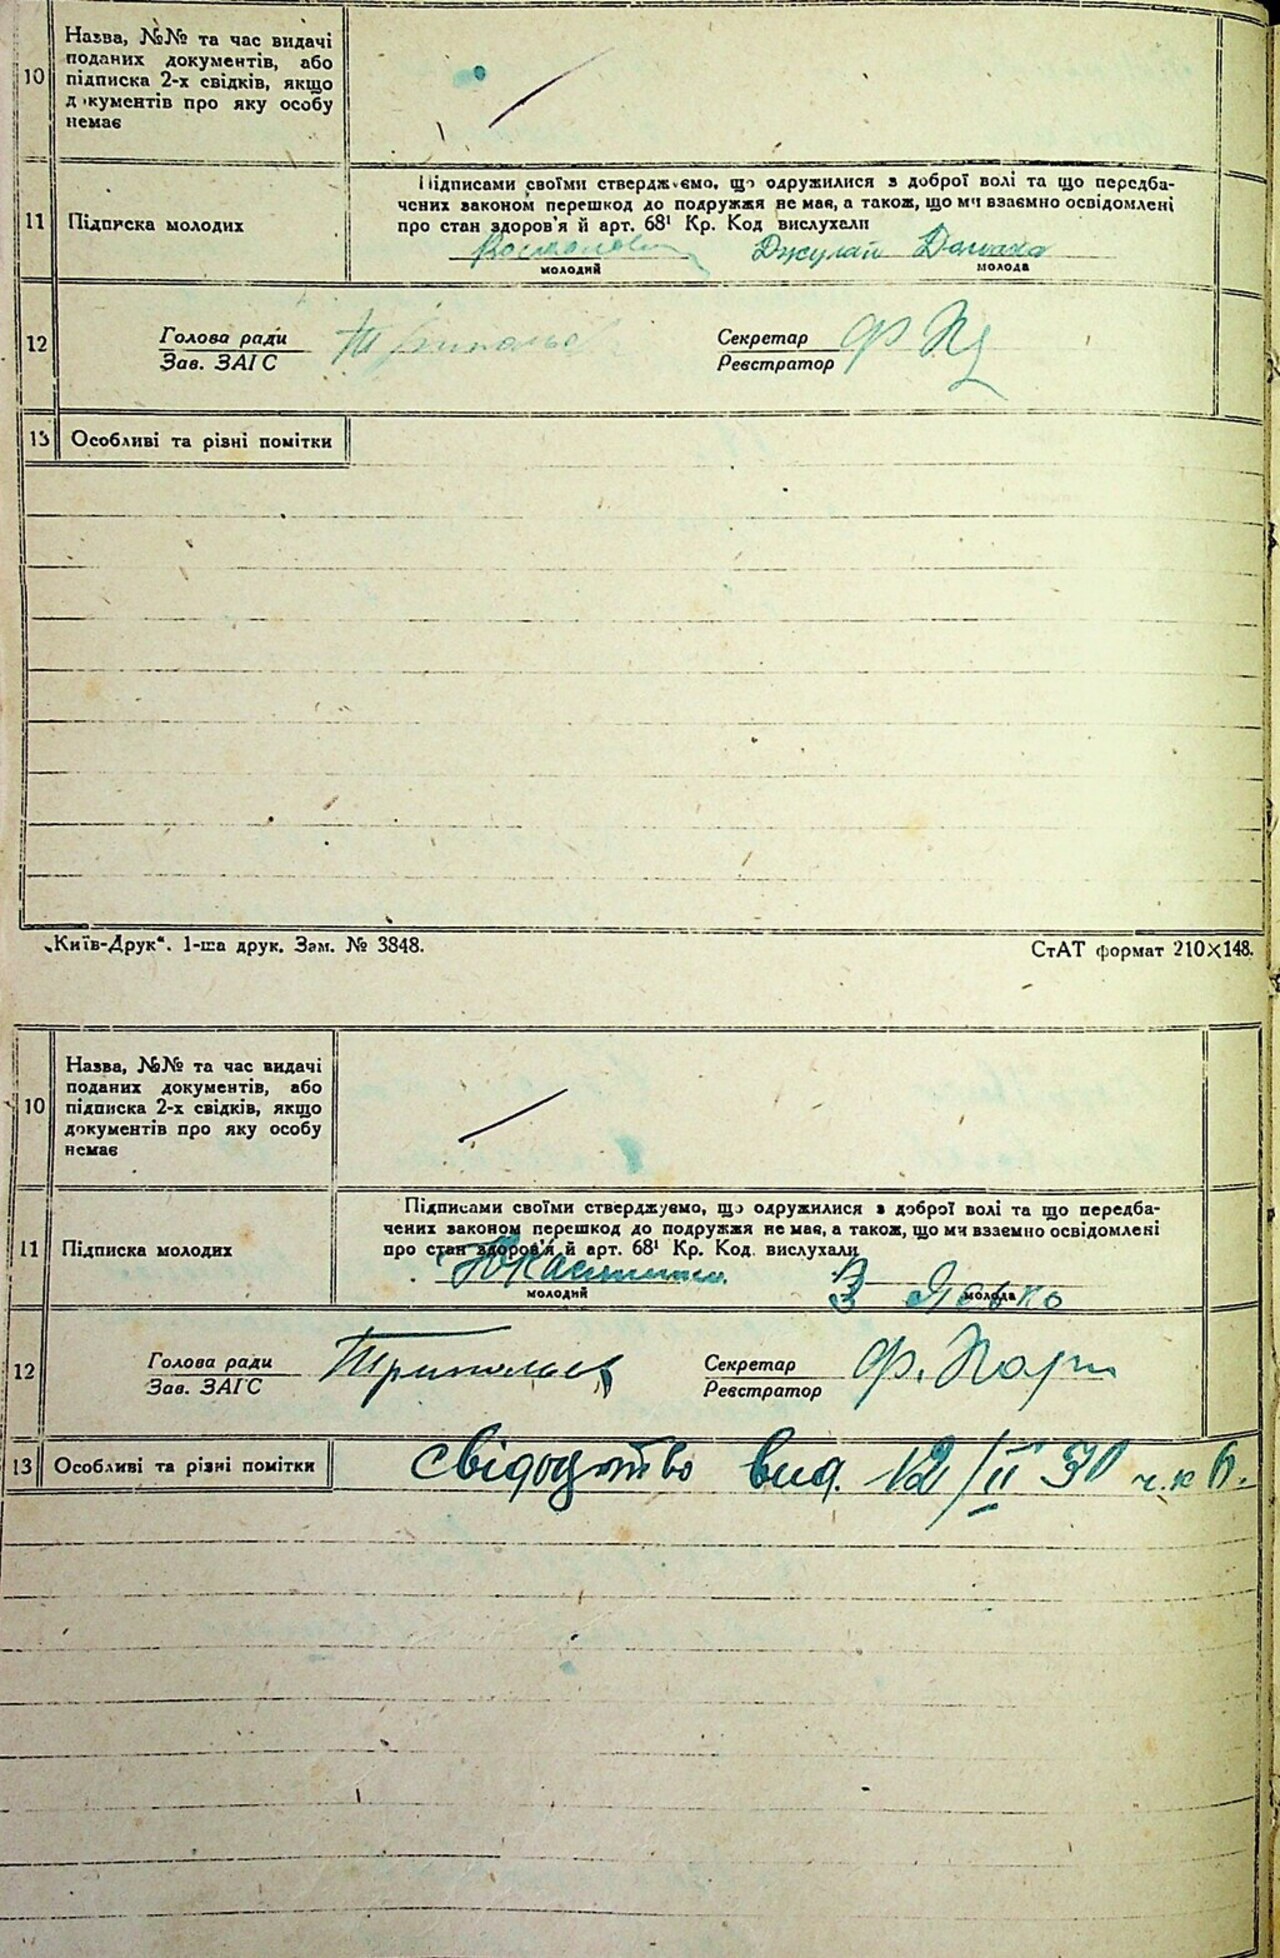 10
Назва, №№ та час видачі
поданих документів, або
підписка 2-х свідків, якщо
документів про яку особу
немає
11
Підписка молодих
Підписами своїми стверджуємо, що одружилися з доброї волі та що передба-
чених законом перешкод до подружжя не має, а також, що ми взаємно освідомлені
про стан здоров'я й арт. 68¹ Кр. Код вислухали
Джулай
молодий
молода
12
Голова ради
Зав. ЗАГС
Секретар
Реєстратор
13
Особливі та різні помітки
„Київ-Друк“. 1-ша друк. Зам. № 3848.
СтАТ формат 210×148.
10
Назва, №№ та час видачі
поданих документів, або
підписка 2-х свідків, якщо
документів про яку особу
немає
11
Підписка молодих
Підписами своїми стверджуємо, що одружилися з доброї волі та що передба-
чених законом перешкод до подружжя не має, а також, що ми взаємно освідомлені
про стан здоров'я й арт. 68¹ Кр. Код. вислухали
молодий
молода
12
Голова ради
Зав. ЗАГС
Секретар
Реєстратор
13
Особливі та різні помітки
свідоцтво вид. 12/II 30